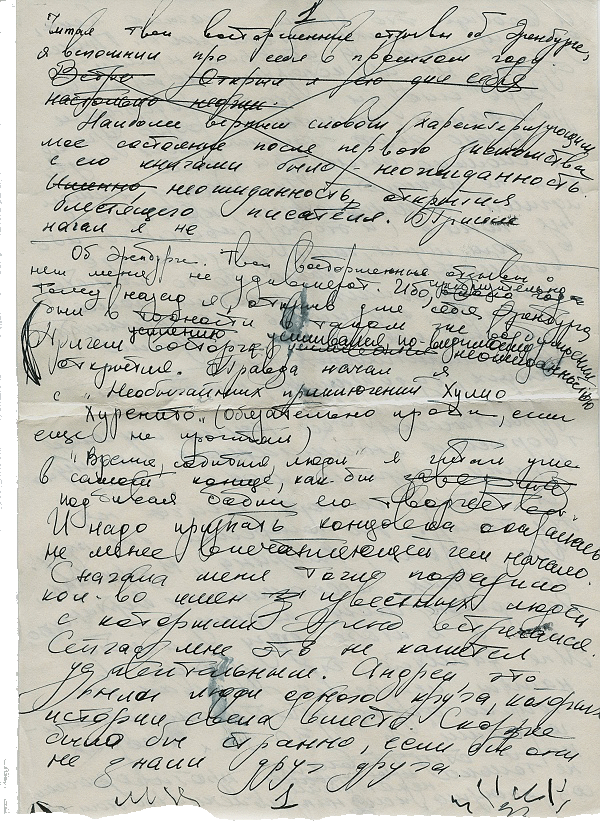 1
Читая твои восторженные отзывы об Эренбурге,
я вспомнил про себя в прошлом году.
открыл я его для себя
настолько
Наиболее верным словом, характеризующим
мое состояние после первого знакомства
с его книгами было - неожиданность.
Именно неожиданность открытия
блестящего писателя.
начал я не
Об Эренбурге. Твои восторженные отзывы о
нем меня не удивляют. Ибо, приблизительно
тому назад я, открыв для себя Эренбурга
был в точности в таком же
Причем восторг усиливался неожиданностью
открытия. Правда начал я
с "Необычайных приключений Хулио
Хуренито" (обязательно прочти, если
еще не прочитал)
"Время, события, люди" я читал уже
в самом конце, как бы
подбивая бабки его творчества.
И надо признать концовка оказалась
не менее впечатляющей чем начало.
Сначала меня тоже поразило
кол-во имен известных людей
с которыми Эренб. встречался.
Сейчас мне это не кажется
удивительным. Андрей, это
были люди одного круга, которых
история свела вместе. Скорее
было бы странно, если бы они
не знали друг друга.
1